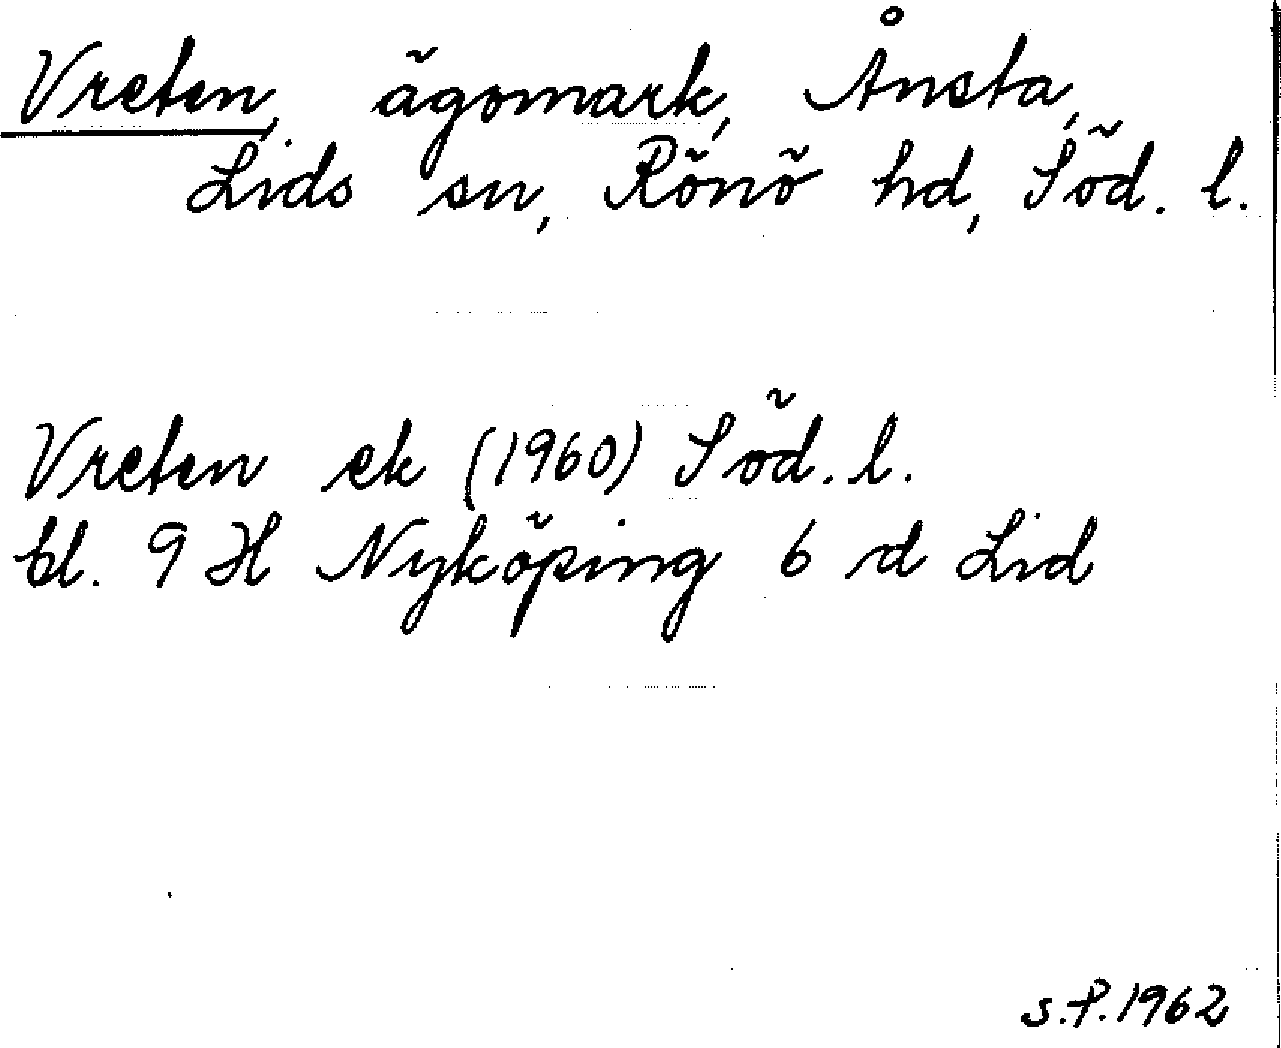 Vreten, ägomark, Ånsta,
Lids sn, Rönö hd, Söd. l.
Vreten ek (1960) Söd. l.
bl. 9 H Nyköping 6 d Lid
S.P. 1962